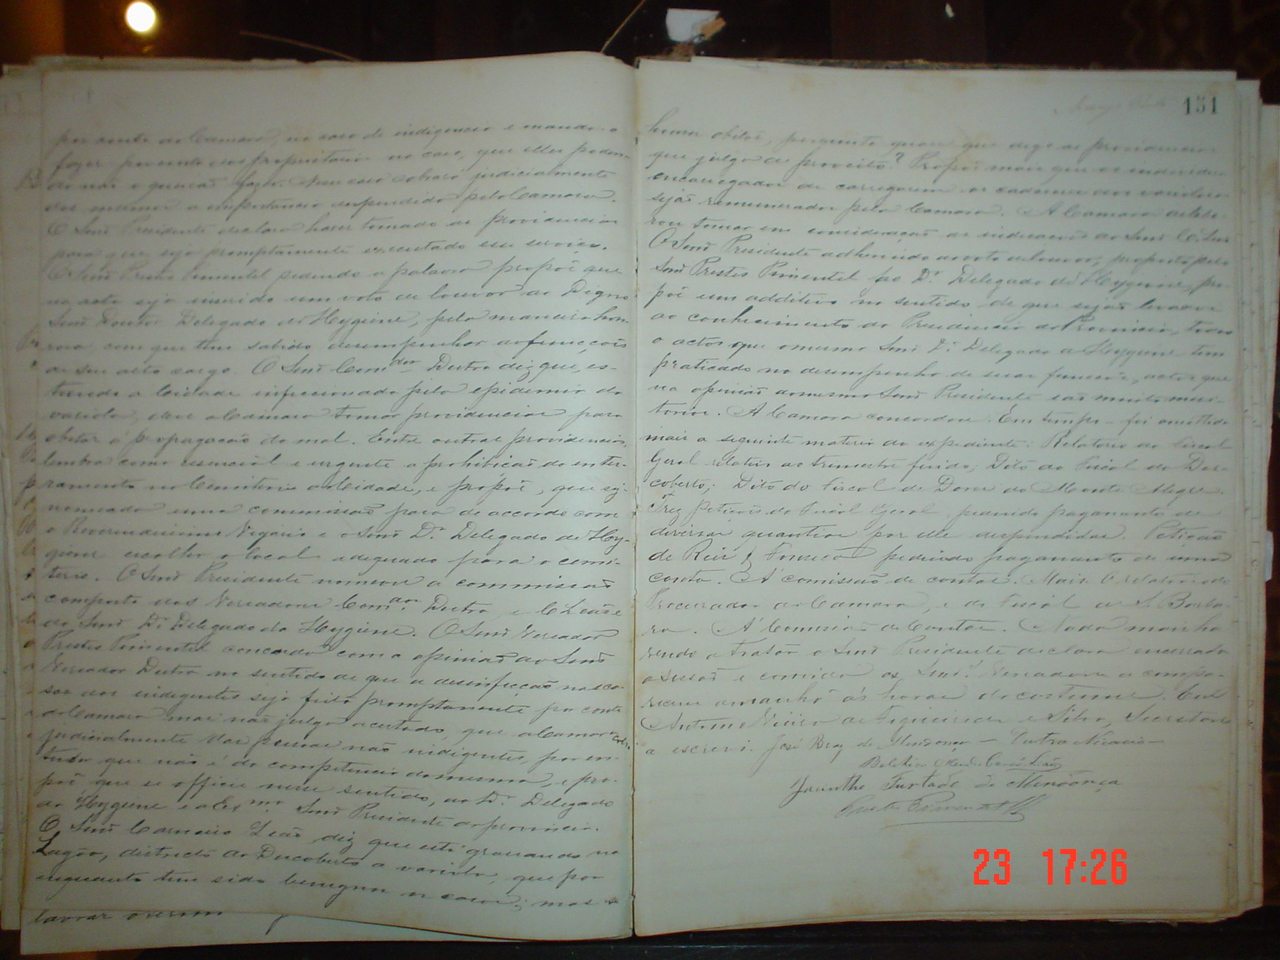 por conta da Camara, no caso de indigencia e mandar
fazer por conta dos proprietarios no caso, que elles poden-
do não o queirão fazer. Neste caso cobrará judicialmente
dos mesmos a importancia despendida pela Camara.
O Snr̃ Presidente declara haver tomado as providencias
para que seja promptamente executado esse serviço.
O Snr̃ Prestes Pimentel pedindo a palavra propõe que
na acta seja inserido um voto de louvor ao Digno
Snr̃ Doutor Delegado de Hygiene, pela maneira hon-
rosa com que tem sabido desempenhar as funcções
de seu alto cargo. O Snr̃ Com.dor Dutra diz que, es-
tando a Cidade infeccionada pela epidemia da
variola, deve a Camara tomar providencias para
obstar a propagação do mal. Entre outras providencias,
lembra como essencial e urgente a prohibição do enter-
ramento no Cemiterio da Cidade, e propõe, que seja
nomeada uma commissão para de accordo com
o Reverendissimo Vigario e o Snr̃ Dr. Delegado de Hy-
giene escolher o local adequado para o cemi-
terio. O Snr̃ Presidente nomeou a commissão
composta dos Vereadores Com.dor Dutra, e C. Leão e
do Snr̃ Dr. Delegado da Hygiene. O Snr̃ Vereador
Prestes Pimentel concorda com a opinião do Snr̃
Vereador Dutra no sentido de que a desinfecção nas ca-
sas dos indigentes seja feita promptamente por conta
da Camara mas não julga acertado, que a Camara cobre
judicialmente das pessoas não indigentes, por en-
tender não é da competencia da mesma e pro-
põe que se officie nesse sentido, ao Dr. Delegado
de Hygiene e ao Ex.mo Snr̃ Presidente da provincia.
O Snr̃ Carneiro Leão diz que está grassando no
Lagão, districto do Descoberto a variola, que por
emquanto tem sido benignos os casos; mas
lavrar
151
houve obitos, pergunta quaes que dizer as providencias
que julga de proveito? Propõe mais que os individuos
encarregados de carregarem os cadaveres dos variolosos
sejão remunerados pela Camara. A Camara delibe-
rou tomar em consideração as indicações do Snr̃ C. Leão
O Snr̃ Presidente adherindo ao voto de louvor, proposto pelo
Snr̃ Prestes Pimentel ao Dr. Delegado de Hygiene, pro-
põe um additivo no sentido de que sejão levados
ao conhecimento da Presidencia da Provincia, todos
os actos que o mesmo Snr̃ Dr. Delegado de Hygiene tem
praticado no desempenho de suas funcções, actos que
na opinião do mesmo Snr̃ Presidente são muito meri-
torios. A Camara concordou. Em tempo foi omittido
mais a seguinte materia do expediente: Relatorio do Fiscal
Geral relativo ao trimestre findo; Dito do Fiscal do Des-
coberto; Dito do Fiscal de Dores do Monte Alegre.
Trez petições do Fiscal Geral, pedindo pagamento de
diversas quantias por elle despendidas. Petição
de Reis & Fonseca pedindo pagamento de uma
conta. A' comissão de contas. Mais o relatorio do
Procurador da Camara, e do Fiscal de S. Barba-
ra. A' Comissão de Contas. Nada mais ha-
vendo a tratar o Snr̃ Presidente declara encerrada
a sessão e convida os Snr.s Vereadores a compa-
recerem amanhã às horas do costume. Eu
Antonio Vieira de Figueiredo e Silva, Secretario
a escrevi. José Braz de Mendonça — Dutra Nicacio —
Jacintho Furtado de Mendonça
Prestes Pimentel
23 17:26